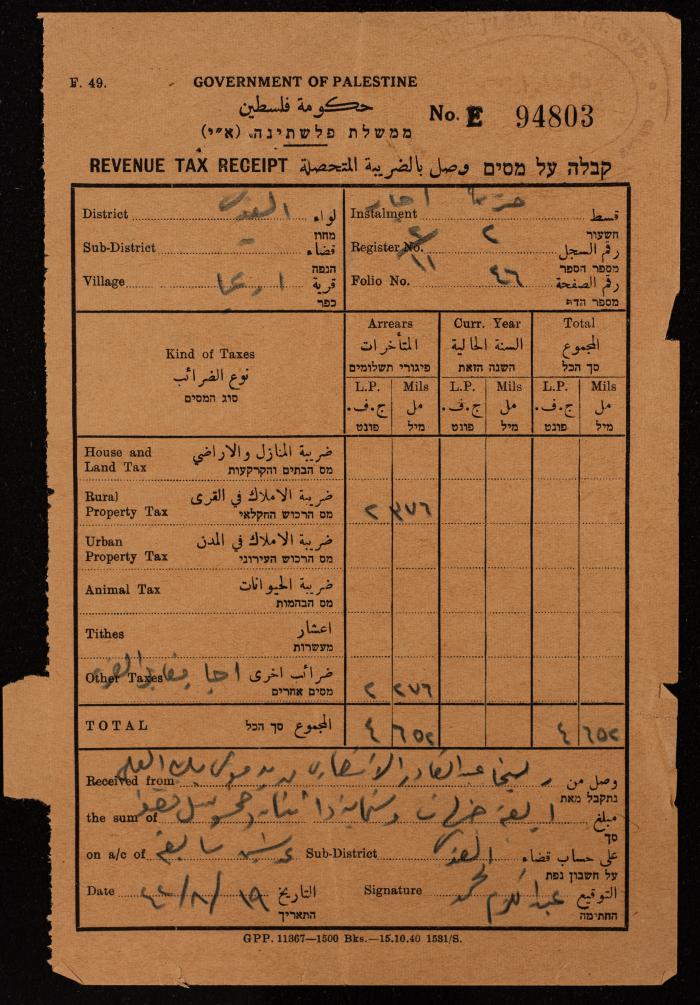 F. 49.
GOVERNMENT OF PALESTINE
حكومة فلسطين
ממשלת פלשתינה (א״י)
No. E 94803
REVENUE TAX RECEIPT وصل بالضريبة المتحصلة קבלה על מסים
District القدس لواء
מחוז
Sub-District – قضاء
הנפה
Village اريحا قرية
כפר
Instalment قسط
השעור
Register No. ٢ رقم السجل
מספר הספר
Folio No. ٤٦ رقم الصفحة
מספר הדף
Kind of Taxes
نوع الضرائب
סוג המסים
Arrears Curr. Year Total
المتأخرات السنة الحالية المجموع
פיגורי תשלומים השנה הזאת סך הכל
L.P. Mils L.P. Mils L.P. Mils
ج.ف. مل ج.ف. مل ج.ف. مل
פונט מיל פונט מיל פונט מיל
House and Land Tax ضريبة المنازل والاراضي
מס הבתים והקרקעות
Rural Property Tax ضريبة الاملاك في القرى ٢ ٣٧٦
מס הרכוש החקלאי
Urban Property Tax ضريبة الاملاك في المدن
מס הרכוש העירוני
Animal Tax ضريبة الحيوانات
מס הבהמות
Tithes اعشار
מעשרות
Other Taxes ضرائب اخرى ٢ ٢٧٦
מסים אחרים
TOTAL المجموع סך הכל ٤ ٦٥٢ ٤ ٦٥٢
Received from عبد القادر الانصاري وصل من
נתקבל מאת
the sum of وستماية واثنان وخمسون مل فقط مبلغ
סך
on a/c of Sub-District القدس على حساب قضاء
על חשבון נפת
Date ١٩/٨/٤٢ التاريخ Signature عبد الكريم التوقيع
התאריך החתימה
GPP. 11367—1500 Bks.—15.10.40 1531/S.